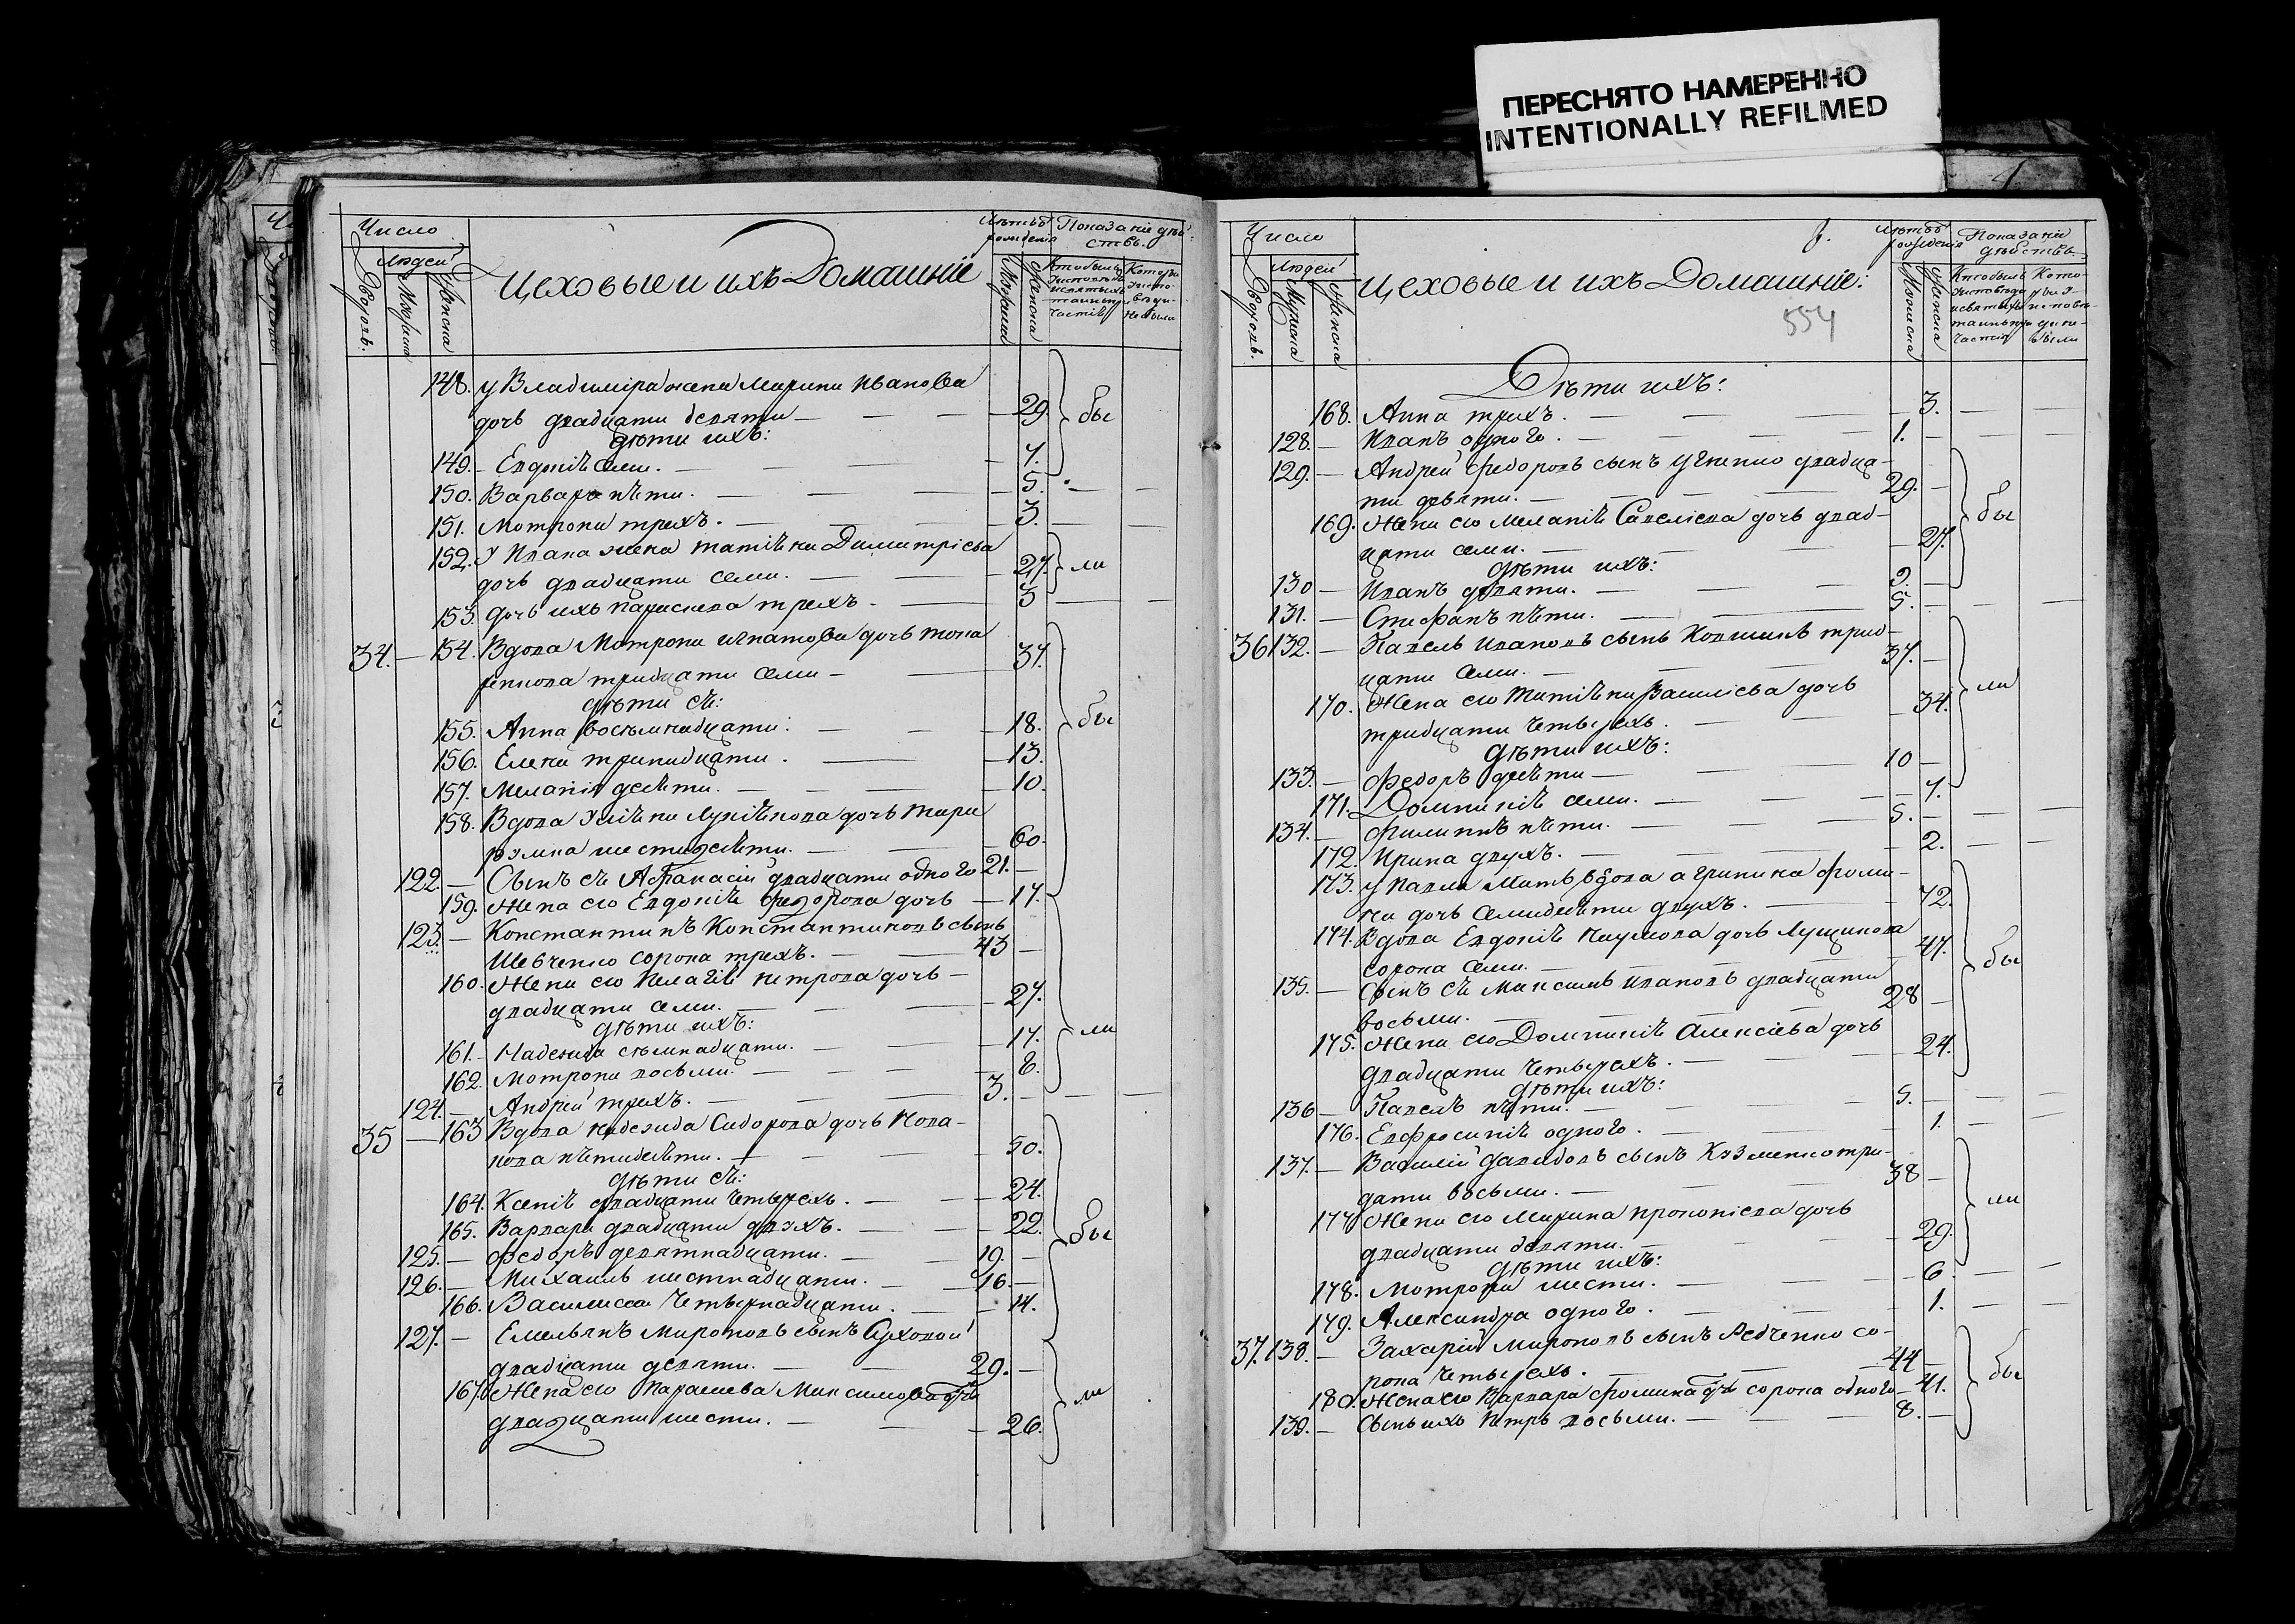 ПЕРЕСНЯТО НАМЕРЕННО
INTENTIONALLY REFILMED
Число
Людей
Дворовъ.
Мужеска
Женска
Цеховые и ихъ Домашніе
Лѣтъ отъ рожденія
Мужеска
Женска
Показаніе дѣйствъ.
148. у Владиміра жена Марина Иванова
дочь двадцати девяти — 29. бы
дѣти ихъ:
149. Евдокія семи. — 7.
150. Варвара пяти. — 5.
151. Мотрона трехъ. — 3.
152. У Ивана жена Татіяна Димитріева
дочь двадцати семи. — 27. ли
153. дочь ихъ Параскева трехъ. — 3
34. — 154. Вдова Мотрона Игнатова дочь
тридцати семи — 37.
дѣти ея:
155. Анна восемнадцати. — 18. бы
156. Елена тринадцати. — 13.
157. Меланія десяти. — 10.
158. Вдова Уліяна Лукіянова дочь
шестидесяти. — 60.
122. — Сынъ ея Афанасій двадцати одного 21. —
159. Жена его Евдокія Федорова дочь — 17.
123. — Константинъ Константиновъ сынъ
Шевченко сорока трехъ. — 43 —
160. Жена его Пелагія Петрова дочь —
двадцати семи. — 27.
дѣти ихъ:
161. Надежда семнадцати. — 17. ли
162. Мотрона восьми. — 8.
124. — Андрей трехъ. — 3. —
35 — 163 Вдова Надежда Сидорова дочь
пятидесяти. — 50.
дѣти ея:
164. Ксенія двадцати четырехъ. — 24.
165. Варвара двадцати двухъ. — 22. бы
125. — Федоръ девятнадцати. — 19. —
126. — Михаилъ шестнадцати. — 16. —
166. Василиса четырнадцати. — 14.
127. — Емельянъ Мироновъ сынъ Суховой
двадцати девяти. — 29. —
167. Жена его Параскева Максимова дочь ли
двадцати шести. — 26.
Число
Людей
Дворовъ.
Мужеска
Женска
Цеховые и ихъ Домашніе:
554
Лѣтъ отъ рожденія
Мужеска
Женска
Показаніе дѣйствъ.
Дѣти ихъ:
168. Анна трехъ. — 3. —
128. — Иванъ одного. — 1. —
129. — Андрей Федоровъ сынъ двадца-
ти девяти. — 29. —
169. Жена его Меланія Савеліева дочь двад- бы
цати семи. — 27.
дѣти ихъ:
130 — Иванъ девяти. — 9. —
131. — Стефанъ пяти. — 5. —
36 132. — Павелъ Ивановъ сынъ трид-
цати семи. — 37. —
170. Жена его Татіяна Василіева дочь ли
тридцати четырехъ. — 34.
дѣти ихъ:
133. — Федоръ десяти — 10 —
171. Домникія семи. — 7.
134. — Филиппъ пяти. — 5. —
172. Ирина двухъ. — 2.
173. у Павла мать вдова Агрипина Фоми-
на дочь семидесяти двухъ. — 72.
174. Вдова Евдокія Наумова дочь Лущикова
сорока семи. — 47. бы
135. — Сынъ ея Максимъ Ивановъ двадцати
восьми. — 28 —
175. Жена его Домникія Алексіева дочь
двадцати четырехъ. — 24.
дѣти ихъ:
136 — Павелъ пяти. — 5. —
176. Евфросинія одного. — 1.
137. — Василій Давидовъ сынъ Кузменко три-
цати восьми. — 38 —
177. Жена его Марина Прокопіева дочь ли
двадцати девяти. — 29.
дѣти ихъ:
178. Мотрона шести. — 6. —
179. Александра одного. — 1. —
37. 138. — Захарій Мироновъ сынъ Редченко со-
рока четырехъ. — 44 — бы
180. Жена его Варвара Фомина дочь сорока одного — 41.
139. — Сынъ ихъ Петръ восьми. — 8. —